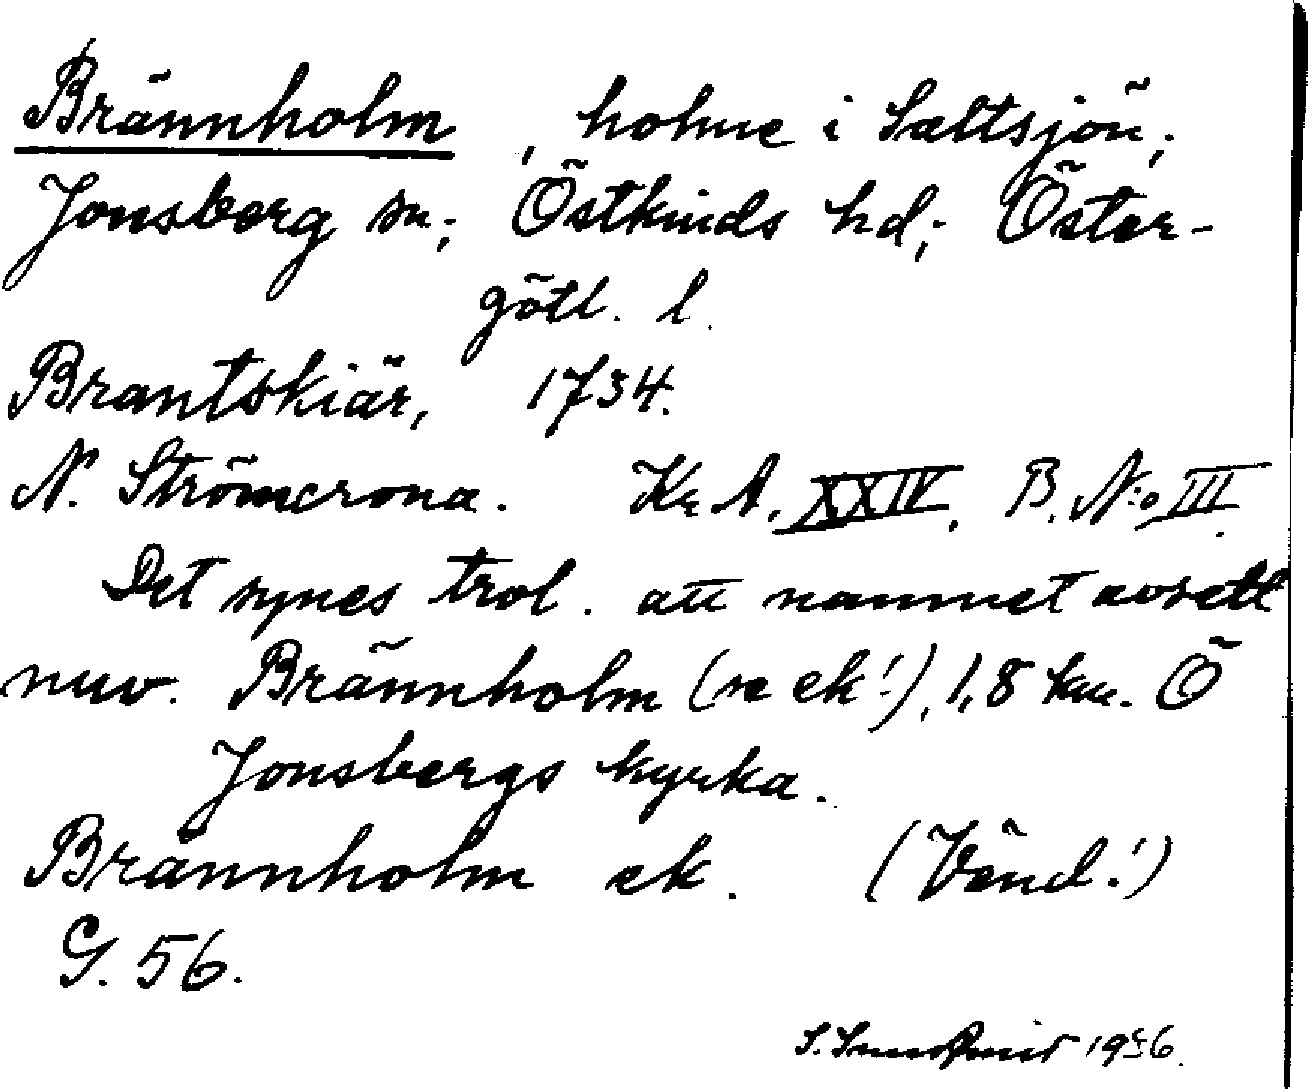 Brännholm, holme i Saltsjön;
Jonsberg sn; Östkinds hd; Öster-
götl. l.
Brantskiär, 1734.
N. Strömcrona. Kr A. XXIV. B. N:o III.
Det synes trol. att namnet avsett
nuv. Brännholm (se ek!), 1,8 km. Ö
Jonsbergs kyrka.
Brännholm ek. (Vänd!)
G. 56.
S. 1956.